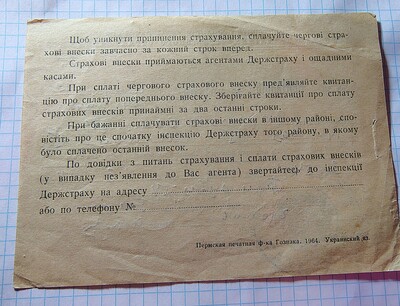 Щоб уникнути припинення страхування, сплачуйте чергові стра-
хові внески завчасно за кожний строк вперед.
Страхові внески приймаються агентами Держстраху і ощадними
касами.
При сплаті чергового страхового внеску пред'являйте квитан-
цію про сплату попереднього внеску. Зберігайте квитанції про сплату
страхових внесків принаймні за два останні строки.
При бажанні сплачувати страхові внески в іншому районі, спо-
вістіть про це спочатку інспекцію Держстраху того району, в якому
було сплачено останній внесок.
По довідки з питань страхування і сплати страхових внесків
(у випадку нез'явлення до Вас агента) звертайтесь до інспекції
Держстраху на адресу
або по телефону №
Пермская печатная ф-ка Гознака. 1964. Украинский яз.